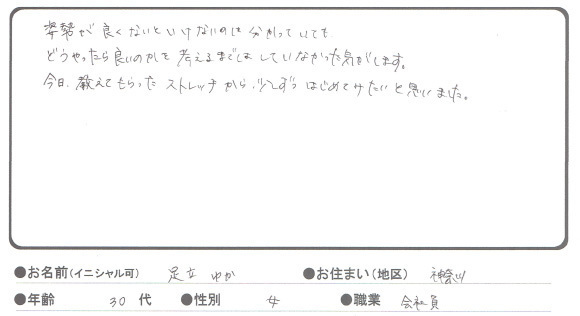 姿勢が良くないといけないのは分かっていても
どうやったら良いのかを考えるまではしていなかった気がします。
今日、教えてもらったストレッチから、少しずつはじめてみたいと思いました。
●お名前(イニシャル可) 足立 ゆか ●お住まい(地区) 神奈川
●年齢 30 代 ●性別 女 ●職業 会社員